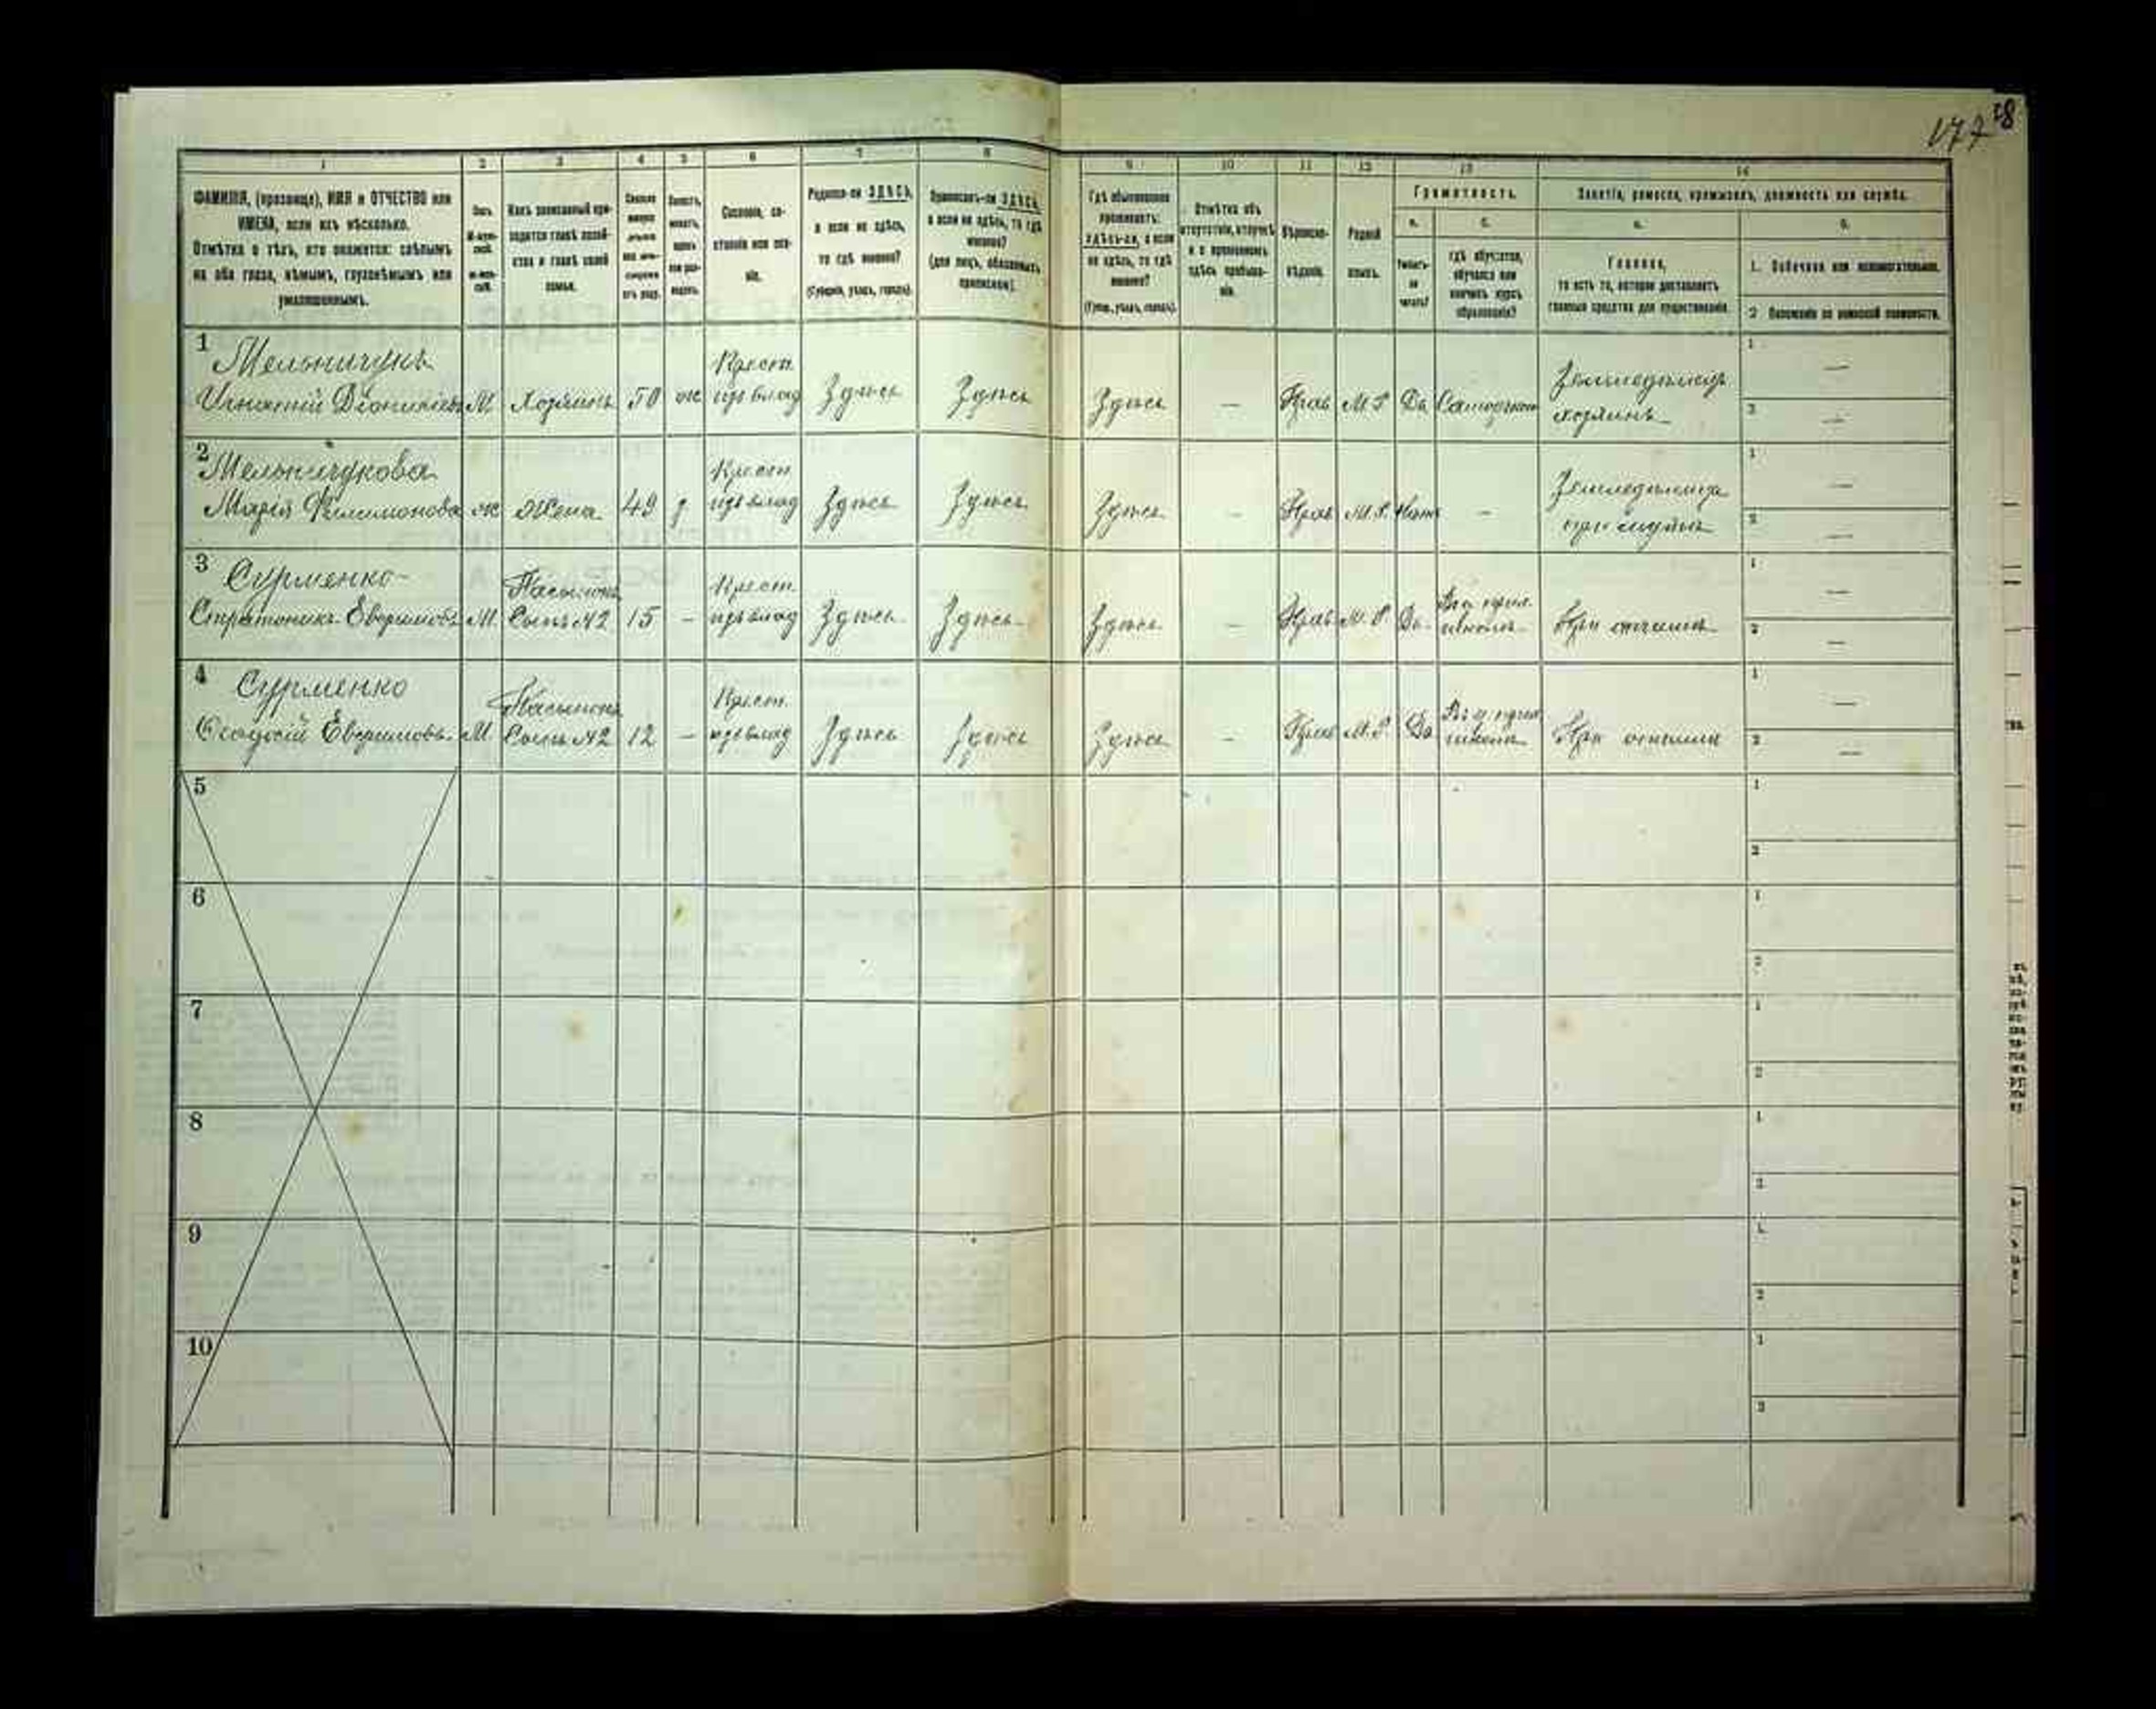 177 28
1
2
3
4
5
6
7
8
9
10
11
12
13
14
ФАМИЛІЯ, (прозвище), ИМЯ и ОТЧЕСТВО или
ИМЕНА, если ихъ нѣсколько.
Отмѣтка о тѣхъ, кто окажется: слѣпымъ
на оба глаза, нѣмымъ, глухонѣмымъ или
умалишеннымъ.
Полъ.
Какъ записанный при-
ходится главѣ хозяй-
ства и главѣ своей
семьи.
Сословіе, со-
стояніе или зва-
ніе.
Родился-ли ЗДѢСЬ,
а если не здѣсь,
то гдѣ именно?
(Губернія, уѣздъ, городъ).
Приписанъ-ли ЗДѢСЬ,
а если не здѣсь, то гдѣ
именно?
(для лицъ, обязанныхъ
припискою).
Гдѣ обыкновенно
проживаетъ:
здѣсь-ли, а если
не здѣсь, то гдѣ
именно?
(Губ., уѣздъ, городъ).
Отмѣтка объ
отсутствіи, отлучкѣ
и о временномъ
здѣсь пребыва-
ніи.
Вѣроиспо-
вѣданіе.
Родной
языкъ.
Грамотность.
а.
б.
Умѣетъ-
ли
читать?
гдѣ обучается,
обучался или
кончилъ курсъ
образованія?
Занятіе, ремесло, промыселъ, должность или служба.
а.
б.
Главное,
то есть то, которое доставляетъ
главныя средства для существованія.
1. Побочное или вспомогательное.
2 Положеніе по воинской повинности.
1 Мельничукъ
Игнатій Діонисіевъ М Хозяинъ 50 ж Крест. изъ влад Здѣсь Здѣсь Здѣсь — Прав М.Р. Да Самоучкой Земледѣлецъ хозяинъ 1 — 2 —
2 Мельничукова
Марія Филимонова ж Жена 49 з Крест изъ влад Здѣсь Здѣсь Здѣсь — Прав М.Р. Нѣтъ — Земледѣлица при мужѣ 1 — 2 —
3 Сурменко
Стратоникъ М. Пасынокъ Сынъ №2 15 — Крест. изъ влад Здѣсь Здѣсь Здѣсь — Прав М.Р. Да школѣ При отчимѣ 1 — 2 —
4 Сурменко
Ѳеодосій М. Пасынокъ Сынъ №2 12 — Крест. изъ влад Здѣсь Здѣсь Здѣсь — Прав М.Р. Да школѣ При отчимѣ 1 — 2 —
5 1 2
6 1 2
7 1 2
8 1 2
9 1 2
10 1 2